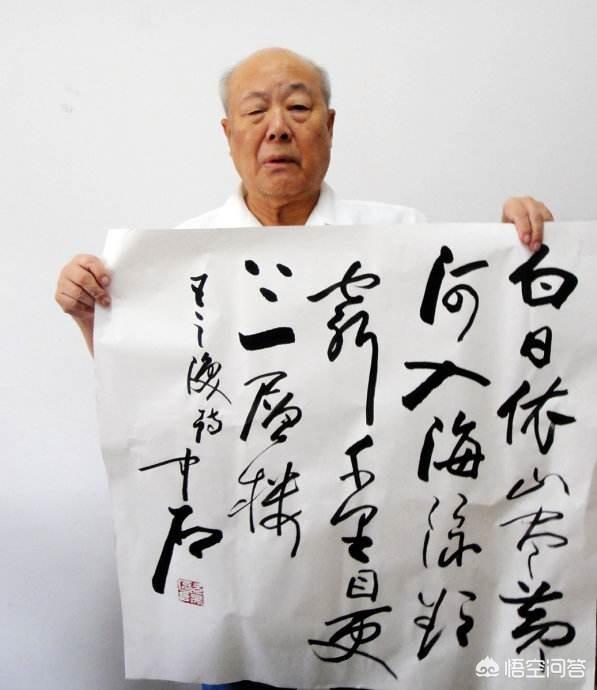 白日依山尽黄
河入海流欲
窮千里目更
上一層樓
王之渙詩 中石
悟空问答